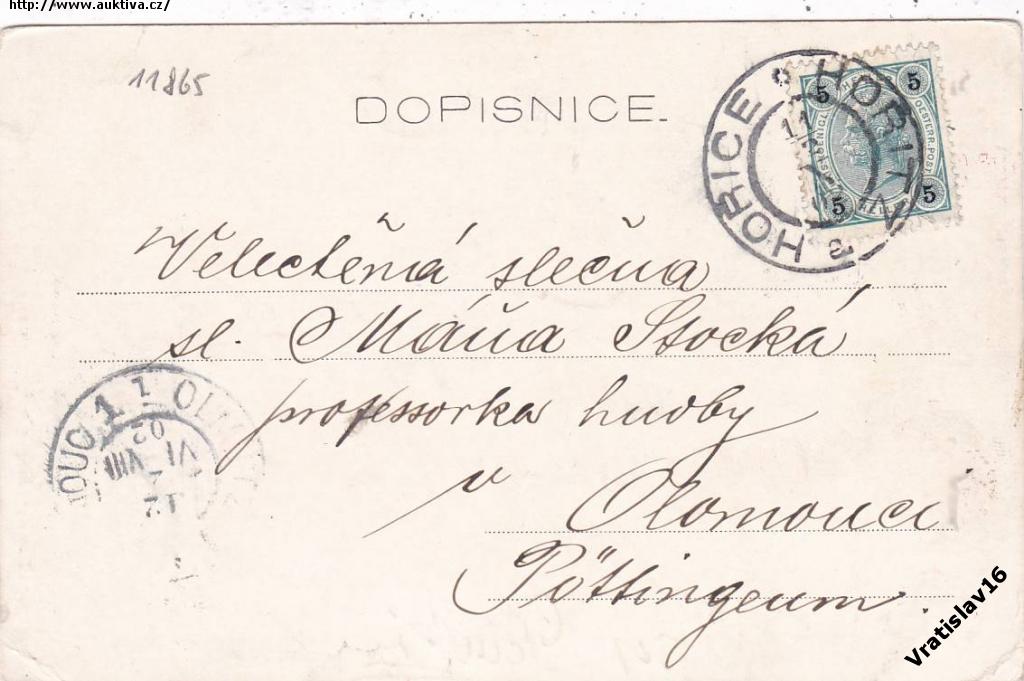 http://www.auktiva.cz/
11865
DOPISNICE.
HOŘITZ
HOŘICE
5 5
5 5
Velectěná slečna
sl. Máňa Stocká
professorka hudby
v Olomouci
Pöttingeum.
1 1
02
VIII
12
Vratislav16